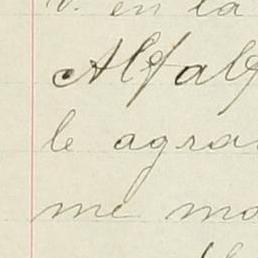 V. en la
Alfalf
le agra
me ma